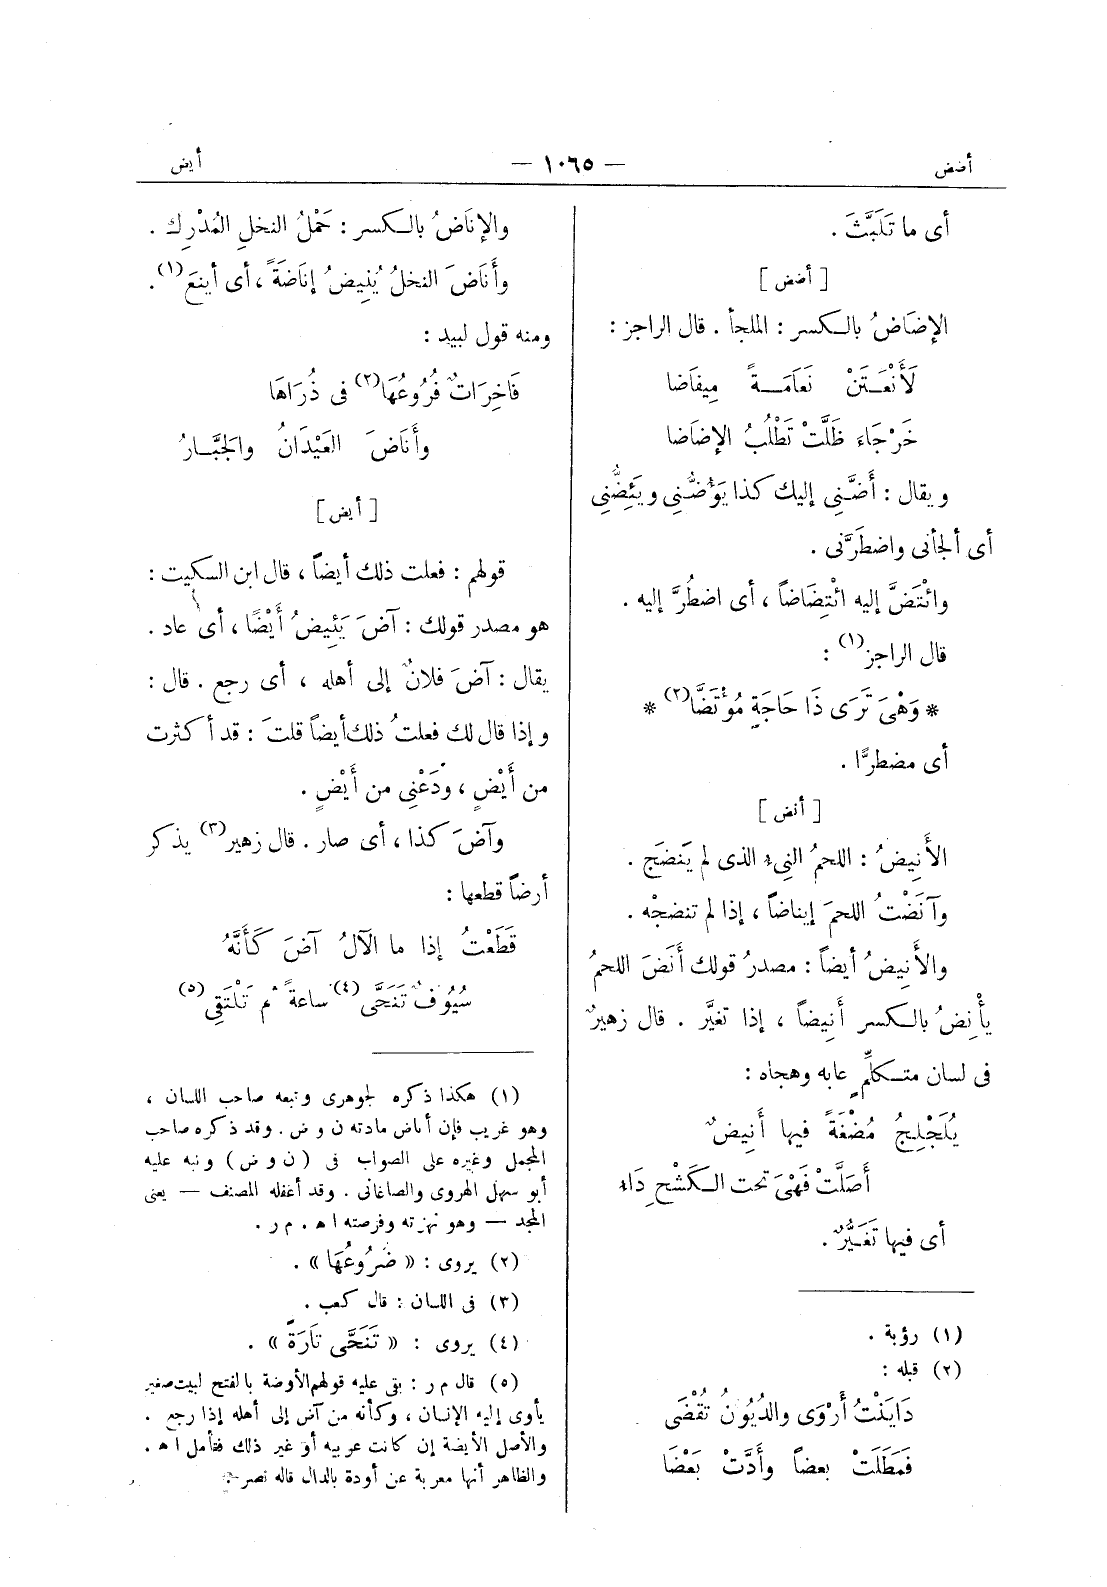 أضض — ١٠٦٥ — أيض
أى ما تَلَبَّثَ .
[ أضض ]
الإضَاضُ بالكسر : الملجأ . قال الراجز :
لَأَنْعَتَنْ نَعَامَةً مِيفَاضا
خَرْجَاءَ ظَلَّتْ تَطْلُبُ الإضَاضا
ويقال : أَضَّنِى إليك كذا يَؤُضُّنِى ويَئِضُّنِى
أى ألجأنى واضطَرَّنى .
وائْتَضَّ إليه ائْتِضَاضاً ، أى اضطُرَّ إليه .
قال الراجز(١) :
* وَهْىَ تَرَى ذَا حَاجَةٍ مُؤْتَضَّا(٢) *
أى مضطرًّا .
[ أنض ]
الأَنِيضُ : اللحمُ النِىء الذى لم يَنضَج .
وآنَضْتُ اللحمَ إيناضاً ، إذا لم تنضجْه .
والأَنِيضُ أيضاً : مصدرُ قولك أَنَضَ اللحمُ
يأْنِضُ بالكسر أَنِيضاً ، إذا تغيَّر . قال زهيرٌ
فى لسان متكلِّمٍ عابه وهجاه :
يُلَجْلِجُ مُضْغَةً فيها أَنِيضٌ
أَصَلَّتْ فَهْىَ تحت الكَشْحِ دَاءُ
أى فيها تَغَيُّرٌ .
(١) رؤبة .
(٢) قبله :
دَايَنْتُ أَرْوَى والدُيُونُ تُقْضَى
فَمَطَلَتْ بعضاً وأَدَّتْ بَعْضَا
والإنَاضُ بالكسر : حَمْلُ النخلِ المُدْرِك .
وأَنَاضَ النخلُ يُنِيضُ إنَاضَةً ، أى أينَعَ(١) .
ومنه قول لبيد :
فَاخِرَاتٌ فُرُوعُهَا(٢) فى ذُرَاهَا
وأَنَاضَ العَيْدَانُ والجَبَّارُ
[ أيض ]
قولهم : فعلت ذلك أيضاً ، قال ابن السكيت :
هو مصدر قولك : آضَ يَئِيضُ أَيْضًا ، أى عاد .
يقال : آضَ فلانٌ إلى أهله ، أى رجع . قال :
وإذا قال لك فعلتُ ذلك أيضاً قلتَ : قد أكثرت
من أَيْضٍ ، ودَعْنِى من أَيْضٍ .
وآضَ كذا ، أى صار . قال زهير(٣) يذكر
أرضاً قطعها :
قَطَعْتُ إذا ما الآلُ آضَ كَأَنَّهُ
سُيُوفٌ تَنَحَّى(٤) ساعةً ثم تَلْتَقِى(٥)
(١) هكذا ذكره الجوهرى وتبعه صاحب اللسان ،
وهو غريب فإن أناض مادته ن و ض . وقد ذكره صاحب
المجمل وغيره على الصواب فى ( ن و ض ) ونبه عليه
أبو سهل الهروى والصاغانى . وقد أغفله المصنف — يعنى
المجد — وهو نهزته وفرصته اه . م ر .
(٢) يروى : « ضُرُوعُهَا » .
(٣) فى اللسان : قال كعب .
(٤) يروى : « تَنَحَّى تَارَةً » .
(٥) قال م ر : بقى عليه قولهم الأوضة بالفتح لبيت صغير
يأوى إليه الإنسان ، وكأنه من آض إلى أهله إذا رجع .
والأصل الأيضة إن كانت عربية أو غير ذلك فتأمل اه .
والظاهر أنها معربة عن أودة بالدال قاله نصر .